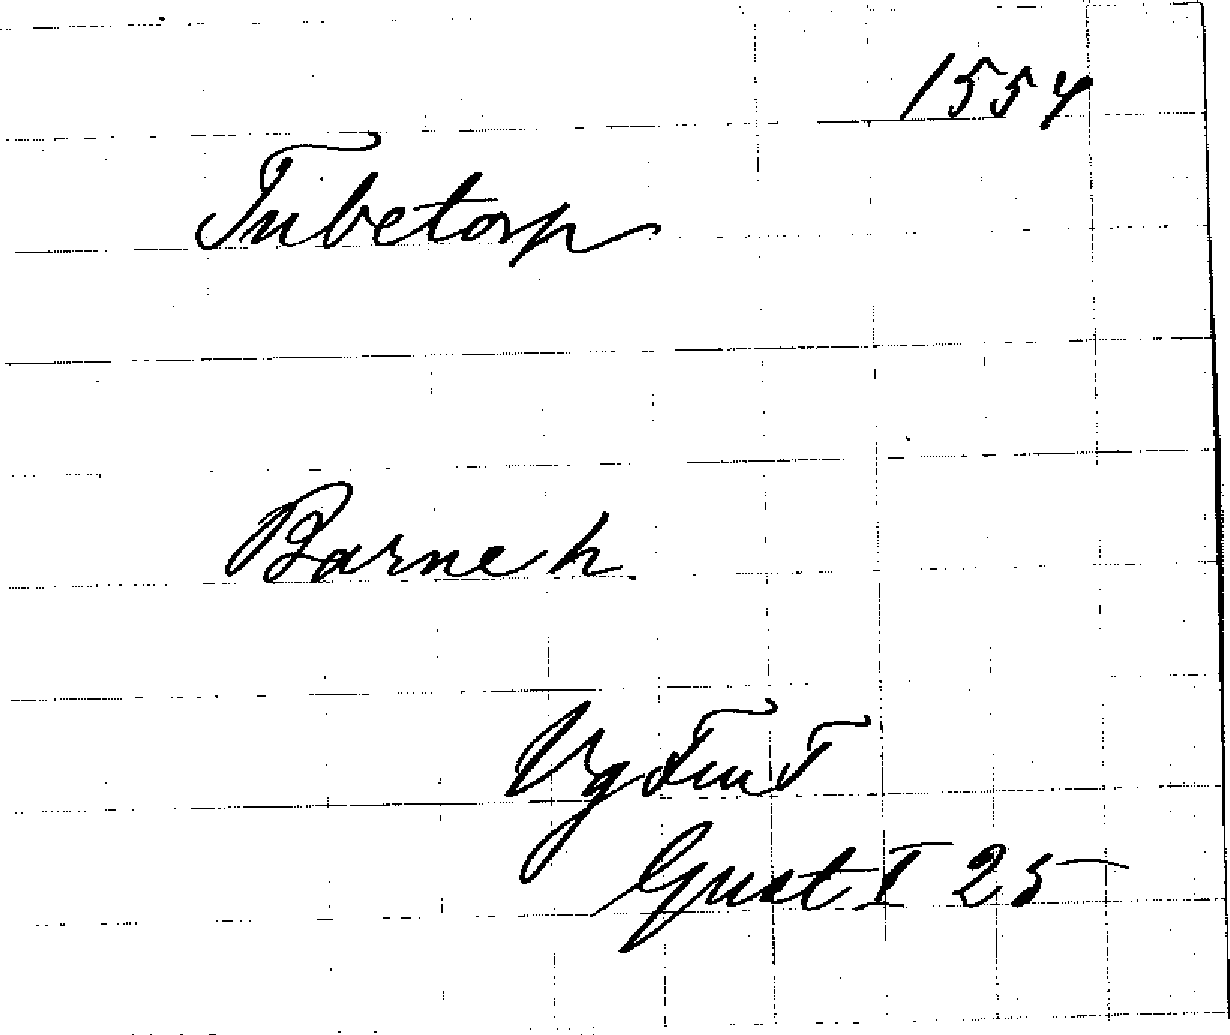 1554
Tubetorp
Barne h.
Vg Tur T
Gust I 25